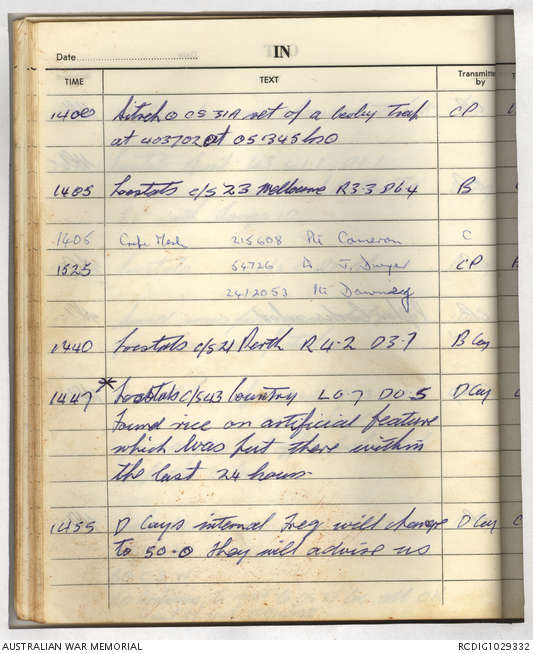 IN
Date
TIME TEXT Transmitted by
1400 Sitrep C/S 31A set of a booby Trap CP
at 403702 at 051345 hrs
1405 Locstats C/S 23 Melbourne R3-3 D6-4 B
1405 215608 Pte Cameron C
1525 54726 A J. Dwyer CP
2412053 Pte Downey
1440 Locstats C/S 21 Perth R4-2 D3-7 B Coy
1447 * Locstats C/S 43 Country L0-7 D0-5 D Coy
Found rice on artificial feature
which was put there within
the last 24 hours
1455 D Coys internal Freq will change D Coy
to 50-0 they will advise us
AUSTRALIAN WAR MEMORIAL RCDIG1029332